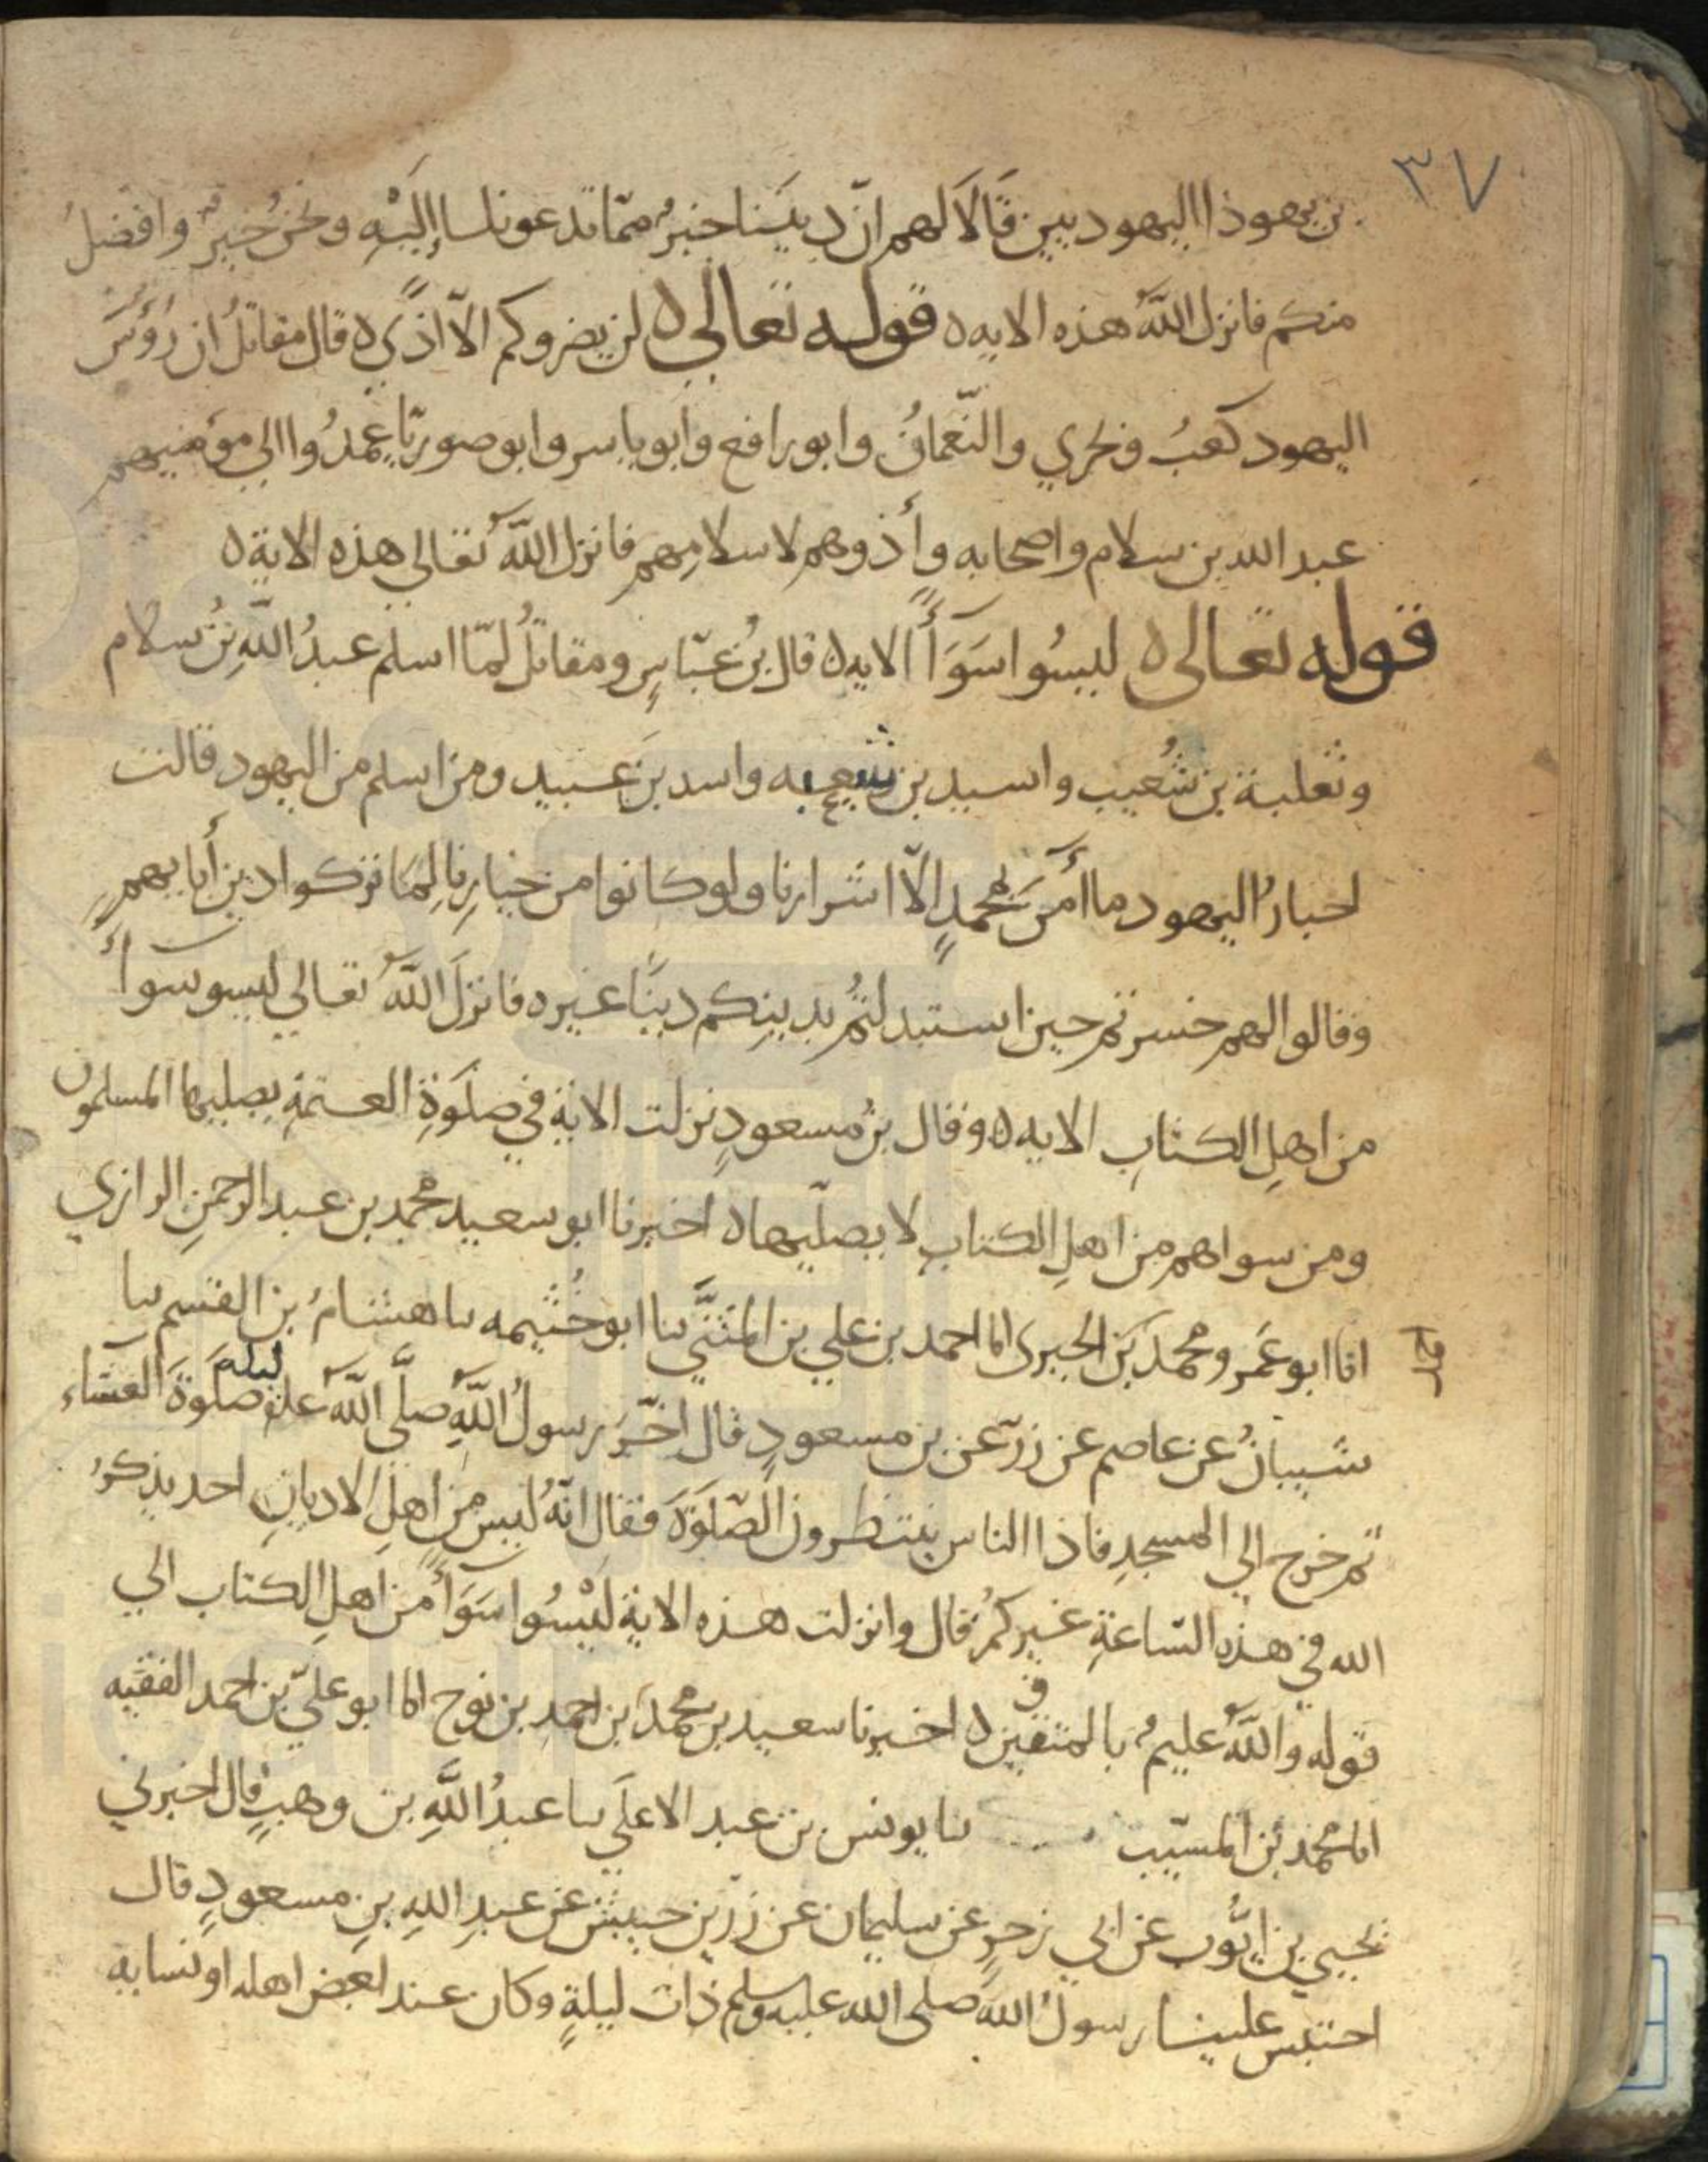 ٣٧
بن يهوذا اليهوديين قَالَا لهم انّ ديننا خيرٌ ممّا تدعوننا إليْهِ ونحنُ خيرٌ وافضلُ
منكم فانزل اللّٰهُ هذه الايه ه قوله تعالى ه لن يضروكم الّا اذًى ه قال مقاتلُ ان رؤسَ
اليهود كعبُ وبحري والنّعمانُ وابو رافع وابو ياسر وابو صوريّا عمدُوا الي مؤمنيهم
عبد الله بن سلام واصحابه وأذوهم لاسلامِهم فانزل اللّٰهُ تعالي هذه الاية ه
قوله تعالى ه ليسُوا سَوَآءً الايه ه قال بنُ عبّاسٍ ومقاتلُ لمّا اسلم عبدُ اللّٰهِ بنُ سلام
وثعلبة بن شُعيب واسيد بن شعبه واسد بن عبيد ومن اسلم من اليهود قالت
احبارُ اليهود ما اٰمنَ بمحمدٍ الّا اشرارنا ولو كانوا من خيارِنا لِمَا تركوا دين أبايهم
وقالوا لهم خسرتم حين استبدلتُم بدينِكم دينًا غيره فانزلَ اللّٰهُ تعالي ليسو سوآءً
من اهلِ الكتابِ الايه ه وقال بنُ مسعودٍ نزلت الاية في صلَوةِ العتمةِ يصليها المسلمون
ومن سواهم من اهلِ الكتابِ لا يصلّيها ه اخبرنا ابو سعيد محمد بن عبد الرحمنِ الرازي
انا ابو عَمرو محمد بن الحيرى انا احمد بن علي بن المثنَّي نا ابو خُثيمه نا هشامُ بن القسم نا
شيبانُ عن عاصم عن زرّ عن بن مسعودٍ قال اخّرَ رسولُ اللّٰهِ صلَّى اللّٰه عليه ليلة صلَوةَ العشاء
ثم خرج الي المسجدِ فاذا الناس ينتظرون الصّلَوةَ فقال انّهُ ليس من اهلِ الاديانِ احد يذكرُ
الله في هذه السّاعةِ غيركُم قال وانزلت هذه الاية ليْسُوا سَوَآءً من اهلِ الكتاب الي
قوله واللّٰهُ عليمٌ بالمتقين ه اخبرنا سعيد بن محمد ابن احمد بن نوح انا ابو عليّ بن احمد الفقيه
انا محمد بن المسيّب نا يونس بن عبد الاعلَي نا عبدُ اللّٰهِ بن وهبٍ قال اخبرني
يحيي بن ايُّوب عن ابي زحرٍ عن سليمان عن زرّ بن حبيش عن عبدِ اللهِ بنِ مسعودٍ قال
احتبس علينا رسولُ اللّٰهِ صلى الله عليه وسلم ذات ليلةٍ وكان عند بعض اهله او نسايه